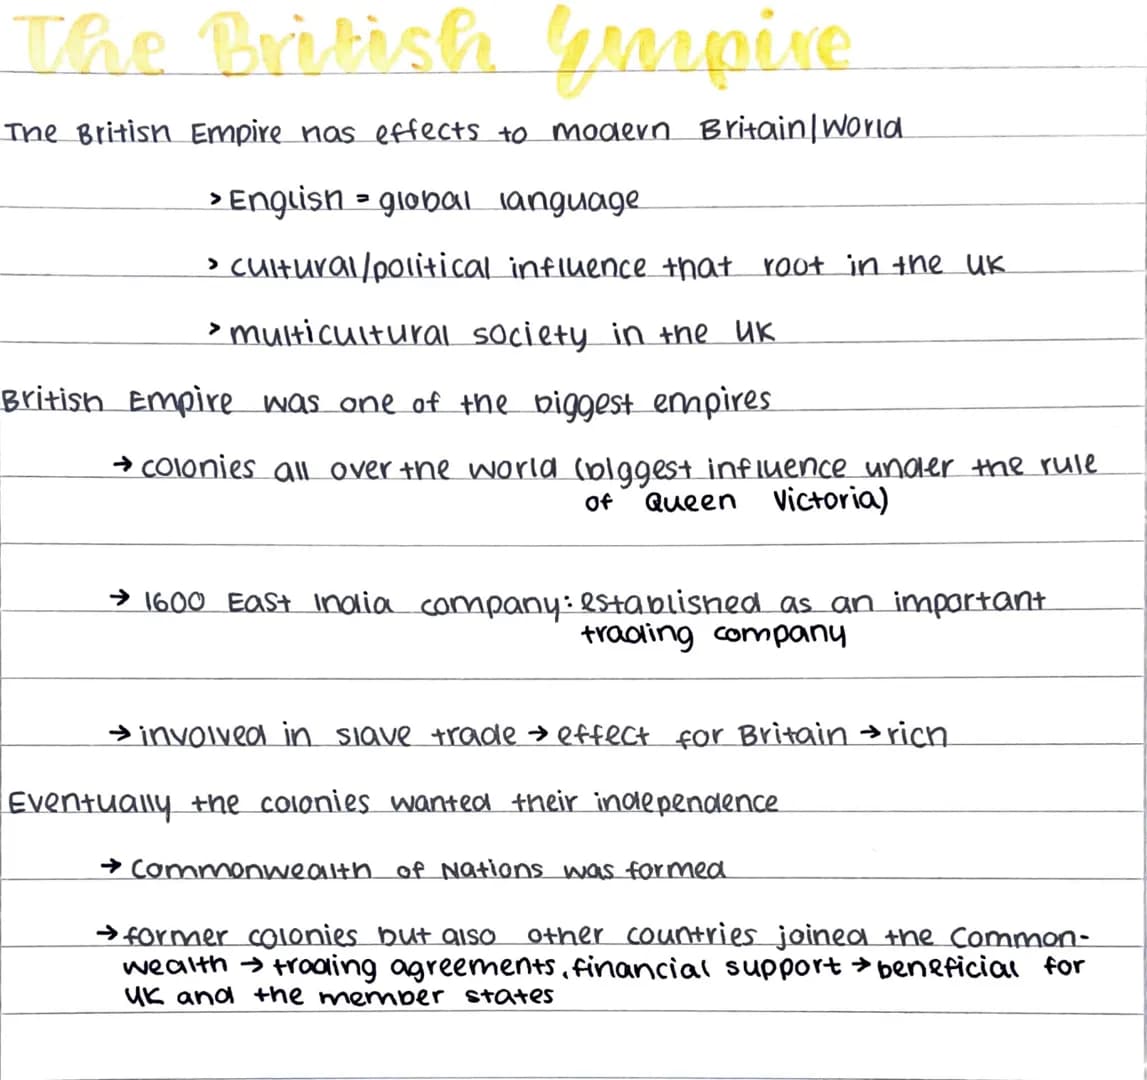 The British Empire
The British Empire has effects to modern Britain/World
> English = global language
> cultural/political influence that root in the UK
> multicultural society in the UK
British Empire was one of the biggest empires
→ colonies all over the world (biggest influence under the rule
of Queen Victoria)
→ 1600 East India company: established as an important
trading company
→ involved in slave trade → effect for Britain → rich
Eventually the colonies wanted their independence
→ Commonwealth of Nations was formed
→ former colonies but also other countries joined the Common-
wealth → trading agreements, financial support → beneficial for
UK and the member states